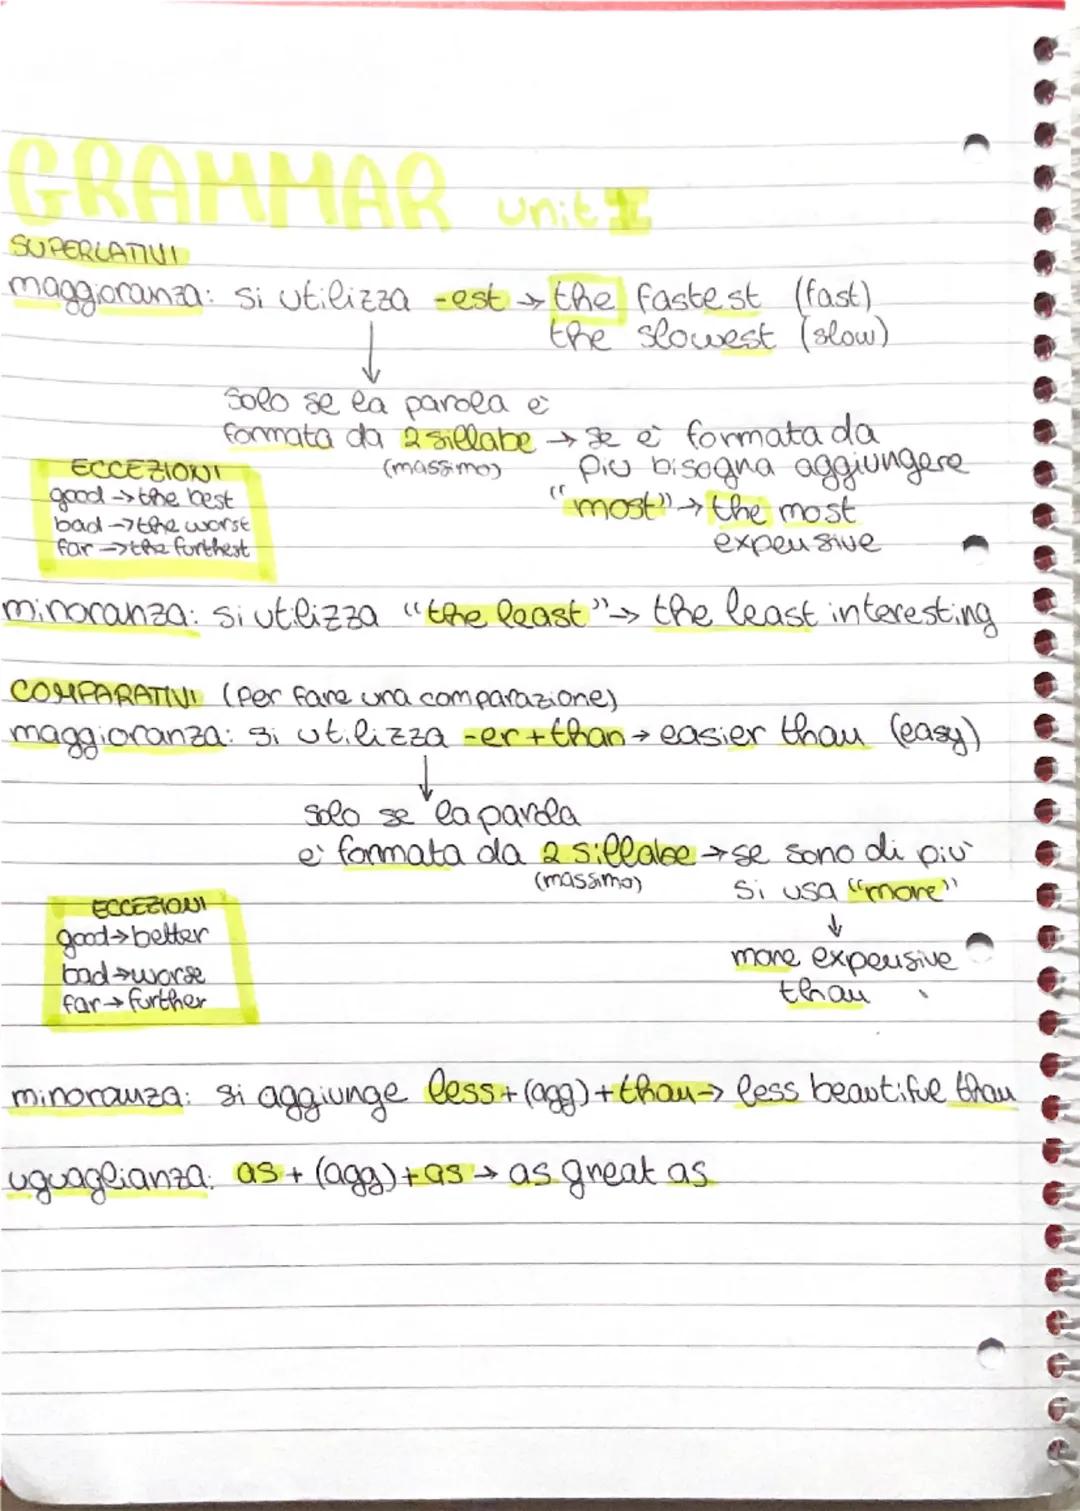 GRAMMAR unit 1
SUPERLATIVI
maggioranza: si utilizza -est → the fastest (fast)
the slowest (slow)
↓
solo se la parola è
formata da 2 sillabe → se è formata da
(massimo) più bisogna aggiungere
"most" → the most
expensive
ECCEZIONI
good → the best
bad → the worst
far → the furthest
minoranza: si utilizza "the least" → the least interesting
COMPARATIVI (per fare una comparazione)
maggioranza: si utilizza -er + than → easier than (easy)
↓
solo se la parola
è formata da 2 sillabe → se sono di più
(massimo) si usa "more"
↓
more expensive
than
ECCEZIONI
good → better
bad → worse
far → further
minoranza: si aggiunge less + (agg) + than → less beautiful than
uguaglianza: as + (agg) + as → as great as